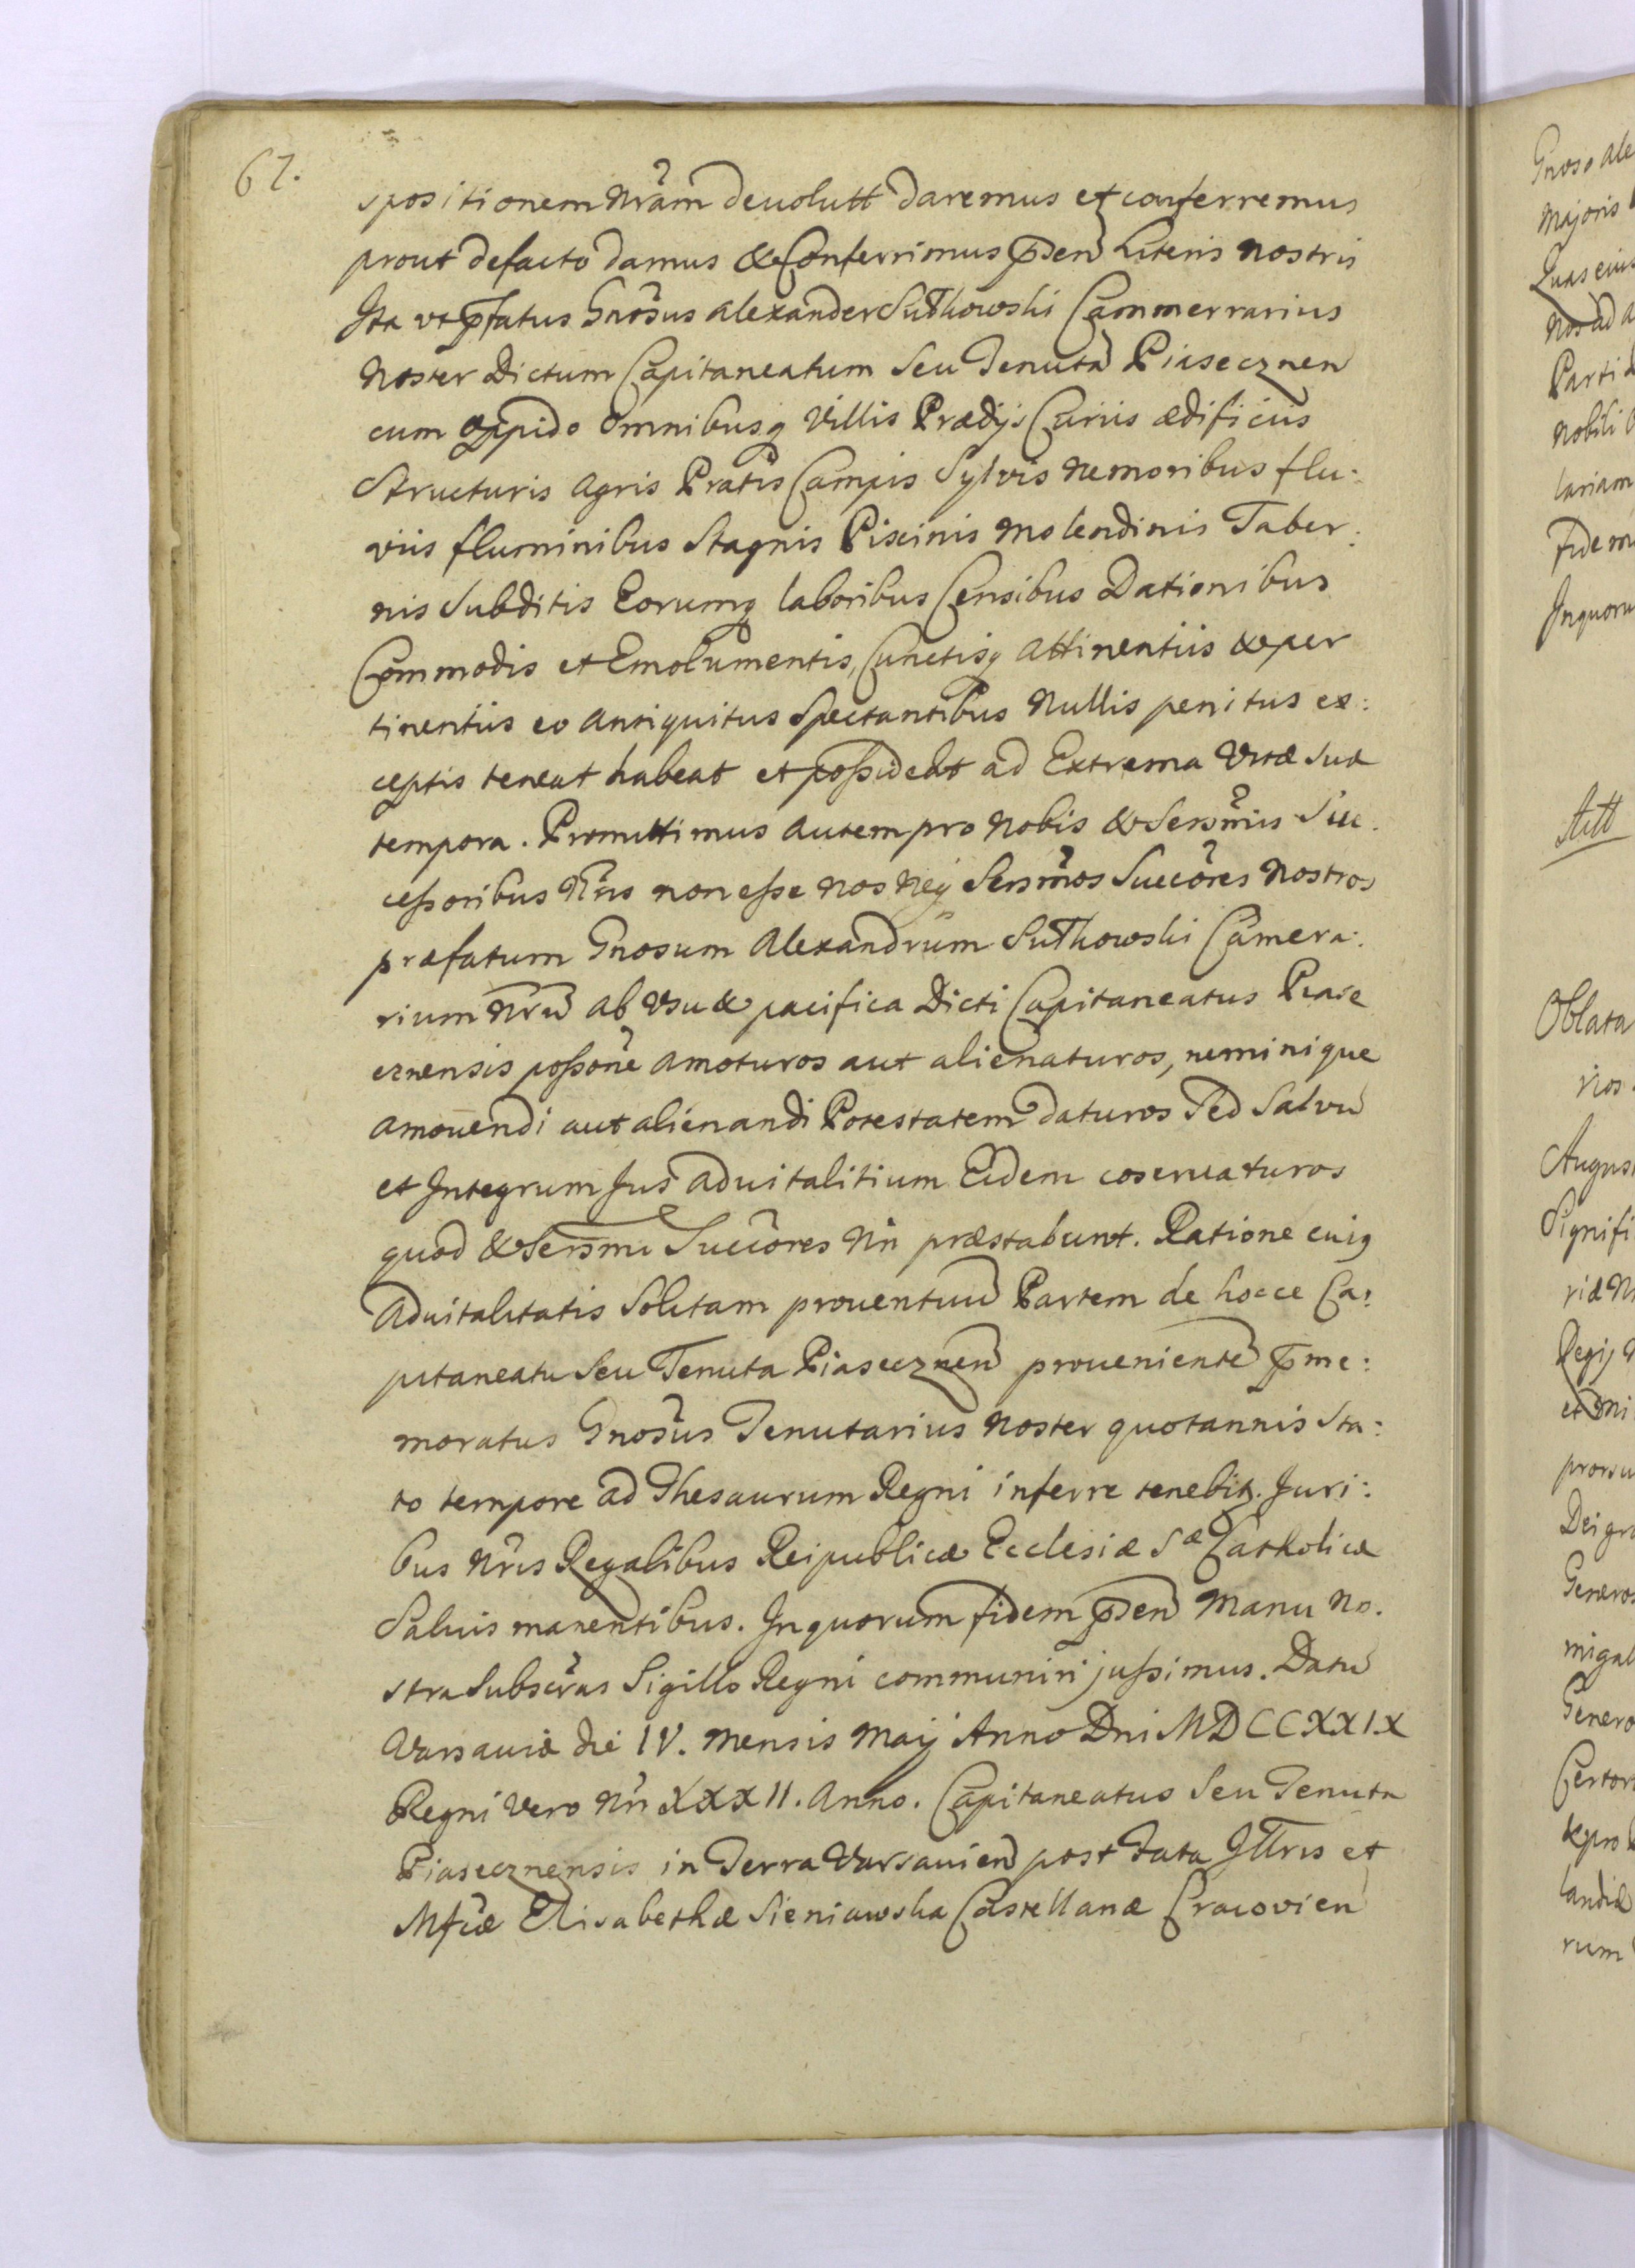 62.
spositionem Nrãm devolutt daremus et conferremus
prout defacto damus & Conferrimus p̃sen Literis nostris
Ita vt p̃fatus Gnõsus Alexander Sułkowski Cammerrarius
Noster Dictum Capitaneatum Seu Tenutã Piasecznen
cum oppido omnibusq Villis Prædijs Curiis ædificiis
Structuris Agris Pratis Campis Sylvis Nemoribus flu:
viis fluminibus Stagnis Piscinis Molendinis Taber:
nis Subditis Eorumq laboribus Censibus Dationibus
Commodis et Emolumentis, Cunctisq Attinentiis & per
tinentiis eo Antiquitus Spectantibus Nullis penitus ex:
ceptis teneat habeat et possideat ad Extrema Vitæ Suæ
tempora. Promittimus Autem pro Nobis & Sersm̃is Suc:
cessoribus Nr̃is non esse Nos Neq Sersm̃os Succõres Nostros
præfatum Gnosum Alexandrum Sułkowski Camera:
rium Nrũ Ab Vsu & pacifica Dicti Capitaneatus Piase
cznensis possõne Amoturos aut alienaturos, neminique
Amovendi aut alienandi Potestatem daturos Sed Salvũ
et Integrum Jus Advitalitium Eidem coservaturos
quod & Sersmi Succõres Nri præstabunt. Ratione cuiq
Advitalitatis Solitam proventuũ Partem de hocce Ca:
pitaneatu Seu Tenuta Piasecznen proveniente p̃me:
moratus Gnosũs Tenutarius Noster quotannis Sta:
to tempore ad Thesaurum Regni inferre tenebitʒ. Juri:
bus Nris Regalibus Reipublicæ Ecclesiæ Sæ Catholicæ
Salvis manentibus. In quorum fidem p̃sen Manu No.
stra Subscr̃as Sigillo Regni communiri jussimus. Datũ
Varsaviæ die IV. Mensis Maij Anno Dni MDCCXXIX
Regni Vero Nri XXXII. Anno. Capitaneatus Seu Tenuta
Piasecznensis in Terra Varsavien post fata Illris et
Mfcæ Elisabethæ Sieniawska Castellanæ Cracovien
Gnoso Ale
Majoris
Quas eius
Nos ad a
Parti
Nobili
lariam
Fidem
Inquoru
Att
Oblata
rios
August
Signifi
riæ N
Regij
et
prorsu
Dei gra
Generos
migal
Genero
Certor
& pro
landiæ
rum